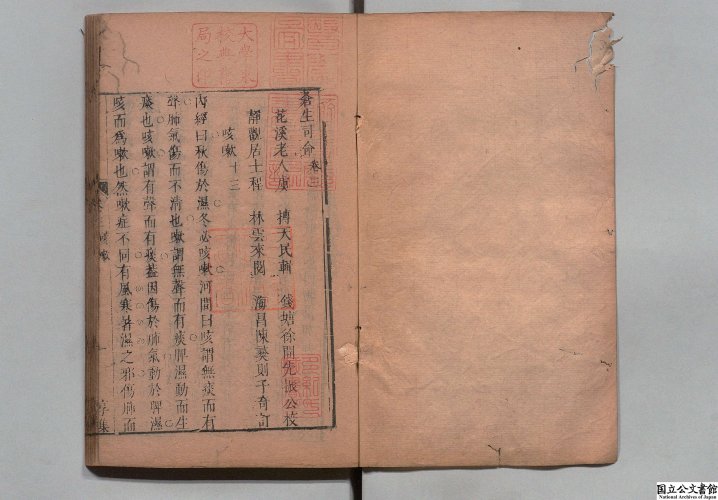 蒼生司命 卷三
花溪老人虞 摶天民輯 錢塘徐開先振公校
靜觀居士程 林雲來閱 海昌陳 則子奇訂
咳嗽十三
內經曰秋傷於濕冬必咳嗽河間曰咳謂無痰而有
聲肺氣傷而不清也嗽謂無聲而有痰脾濕動而生
痰也咳嗽謂有聲而有痰葢因傷於肺氣動於脾濕
咳而爲嗽也然嗽症不同有風寒暑濕之邪傷肺而
咳嗽
亨集
国立公文書館
National Archives of Japan